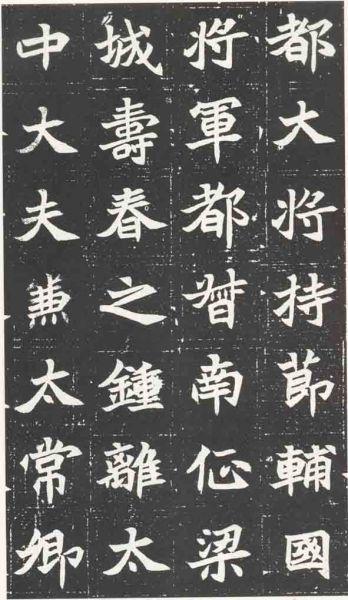 都大将持節輔國
将軍都督南征梁
城壽春之鍾離太
中大夫兼太常卿